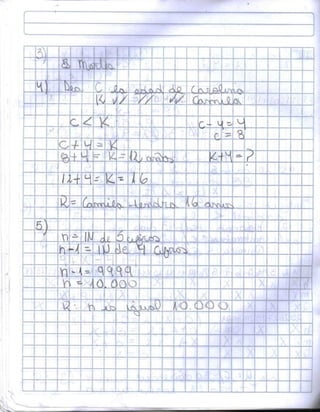 3)
8 Martes
4) Sea C la edad de Carolina
K // // // Camila
C < K
C - 4 = 4
C = 8
C + 4 = K
8 + 4 = K = 12 años
K + 4 = ?
12 + 4 = K = 16
R = Camila tendra 16 años
5)
n = IN de 5 cifras
n - 1 = IN de 4 cifras
n - 1 = 9999
n = 10.000
R: n es igual 10.000